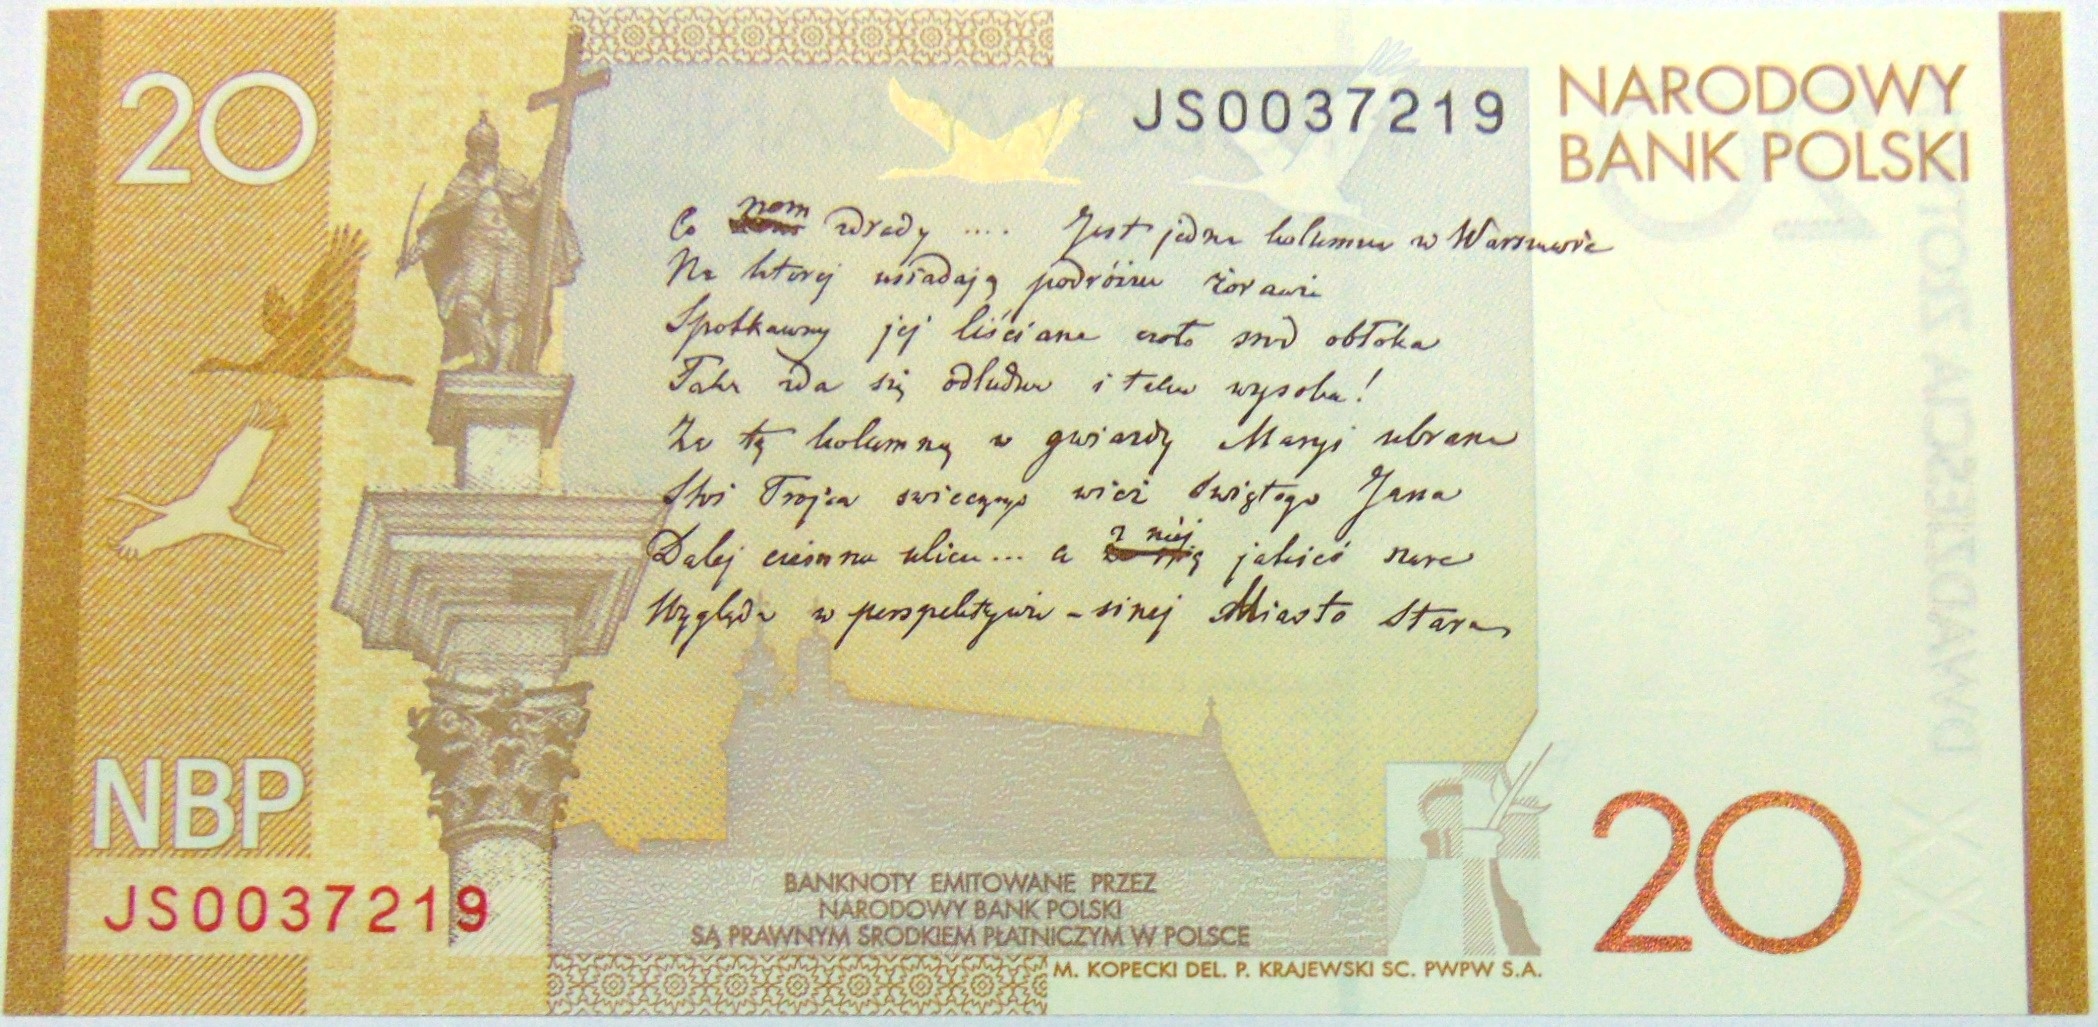 20
JS0037219
NARODOWY
BANK POLSKI
Co nam zdrady .... Jest jedna kolumna w Warszawie
Na ktorej usiadają podróżne żorawie
Spotkawszy jej liściane czoło snod obłoka
Taka zda się odludna i taka wysoka!
Za tą kolumną w gwiazdy Maryi ubrana
Stoi Trojca swiecących wież Świętego Jana
Dalej ciemna ulica... a z niéj jakieś szare
Wygląda w perspektywie - sinej Miasto Stare
NBP
JS0037219
BANKNOTY EMITOWANE PRZEZ
NARODOWY BANK POLSKI
SĄ PRAWNYM ŚRODKIEM PŁATNICZYM W POLSCE
20
M. KOPECKI DEL. P. KRAJEWSKI SC. PWPW S.A.